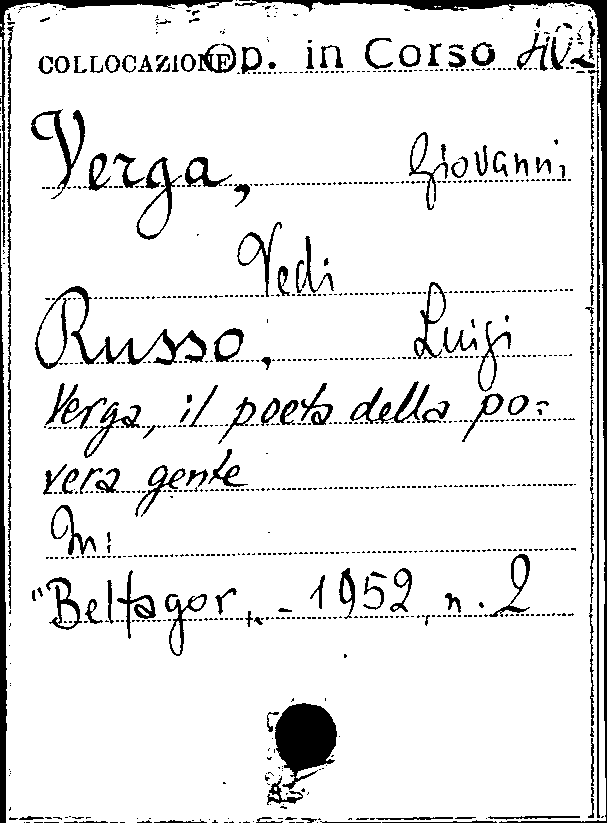 COLLOCAZIONE Op. in Corso 402
Verga, Giovanni
Vedi
Russo, Luigi
Verga, il poeta della po=
vera gente
In:
"Belfagor„ - 1952, n. 2